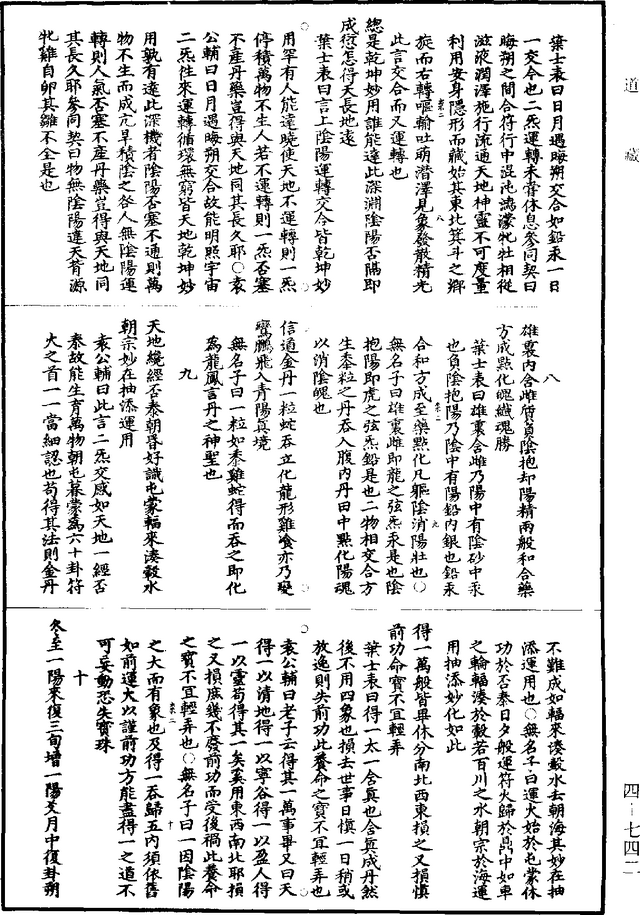 道藏
葉士表曰日月遇晦朔交合如鉛汞一日
一交合也二炁運轉未嘗休息參同契曰
晦朔之間合符行中混沌鴻濛牝牡相從
滋液潤澤施行流通天地神靈不可度量
利用安身隱形而藏始其東北箕斗之鄉
旋而右轉嘔輪吐萌潛澤見象發散精光
此言交合而又運轉也
總是乾坤妙用誰能達此深淵陰陽否隔即
成愆怎得天長地遠
葉士表曰言上陰陽運轉交合皆乾坤妙
用罕有人能達曉使天地不運轉則一炁
停積萬物不生人若不運轉則一炁否塞
不產丹藥豈得與天地同其長久耶○袁
公輔曰日月遇晦朔交合故能明照宇宙
二炁往來運轉循環無窮皆天地乾坤妙
用孰有達此深機者陰陽否塞不通則萬
物不生而成亢旱積陰之咎人無陰陽運
轉則人氣否塞不產丹藥豈得與天地同
其長久耶參同契曰物無陰陽違天背源
牝雞自卵其雛不全是也
八
雄裏內含雌質負陰抱却陽精兩般和合藥
方成點化魄纖魂勝
葉士表曰雄裏含雌乃陽中有陰砂中汞
也負陰抱陽乃陰中有陽鉛內銀也鉛汞
合和方成至藥點化凡軀陰消陽壯也○
無名子曰雄裏雌即龍之弦炁汞是也陰
抱陽即虎之弦炁鉛是也二物相交合方
生黍粒之丹吞入腹內丹田中點化陽魂
以消陰魄也
信道金丹一粒蛇吞立化龍形雞飡亦乃變
鸞鵬飛入青陽真境
無名子曰一粒如黍雞蛇得而吞之即化
為龍鳳言丹之神聖也
九
天地纔經否泰朝昏好識屯蒙輻來湊轂水
朝宗妙在抽添運用
袁公輔曰此言二炁交感如天地一經否
泰故能生育萬物朝屯暮蒙為六十卦符
火之首一一當細認也苟得其法則金丹
不難成如輻來湊轂水去朝海其妙在抽
添運用也○無名子曰運火始於屯蒙休
功於否泰日夕般運符火歸於鼎中如車
之輪輻湊於轂若百川之水朝宗於海運
用抽添妙化如此
得一萬般皆畢休分南北西東損之又損慎
前功命寶不宜輕弄
葉士表曰得一太一含真也含真成丹然
後不用四象也損去世事日慎一日稍或
放逸則失前功此養命之寶不宜輕弄也
袁公輔曰老子云得其一萬事畢又曰天
得一以清地得一以寧谷得一以盈人得
一以靈苟得其一矣奚用東西南北耶損
之又損庶幾不廢前功而受後禍此養命
之寶不宜輕弄也○無名子曰一因陰陽
之大而有象也及得一吞歸五內須依舊
如前運火以謹前功方能盡得一之道不
可妄動恐失寶珠
十
冬至一陽來復三旬增一陽爻月中復卦朔
四－七四二